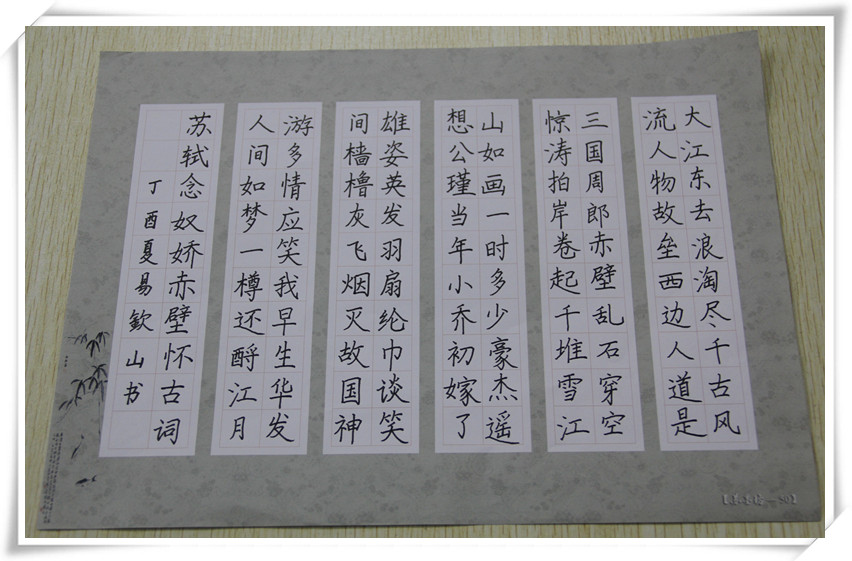 大江东去浪淘尽千古风
流人物故垒西边人道是
三国周郎赤壁乱石穿空
惊涛拍岸卷起千堆雪江
山如画一时多少豪杰遥
想公瑾当年小乔初嫁了
雄姿英发羽扇纶巾谈笑
间樯橹灰飞烟灭故国神
游多情应笑我早生华发
人间如梦一樽还酹江月
苏轼念奴娇赤壁怀古词
丁酉夏易欽山书